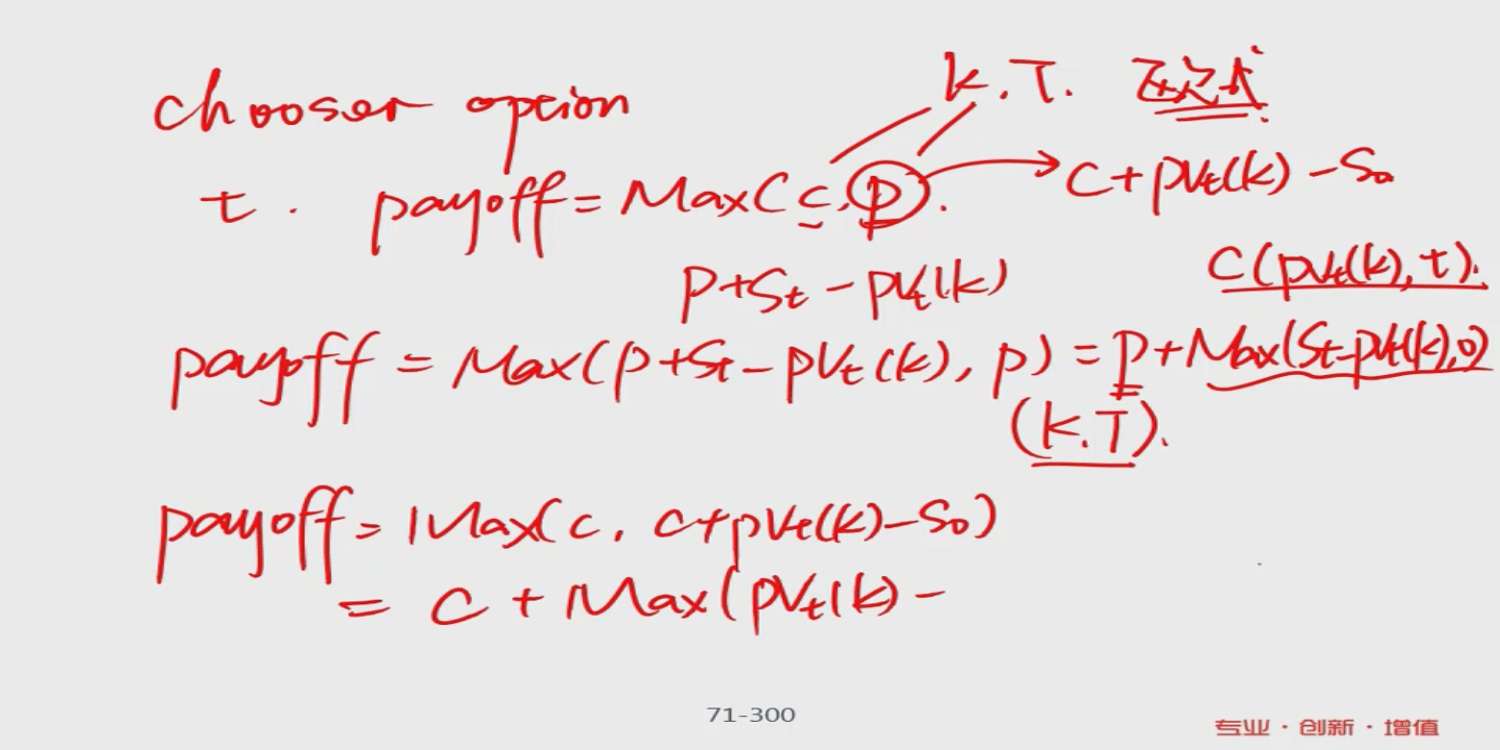 chooser option
k.T. 
t. payoff = Max(c, p).
c+pVt(k) - So
p+St - pVt(k)
C(pVt(k), t).
payoff = Max(p+St - pVt(k), p) = p+Max(St-pVt(k),0)
(k.T).
payoff = Max(c, c+pVt(k) - So)
= C + Max(pVt(k) -
71-300
专业·创新·增值